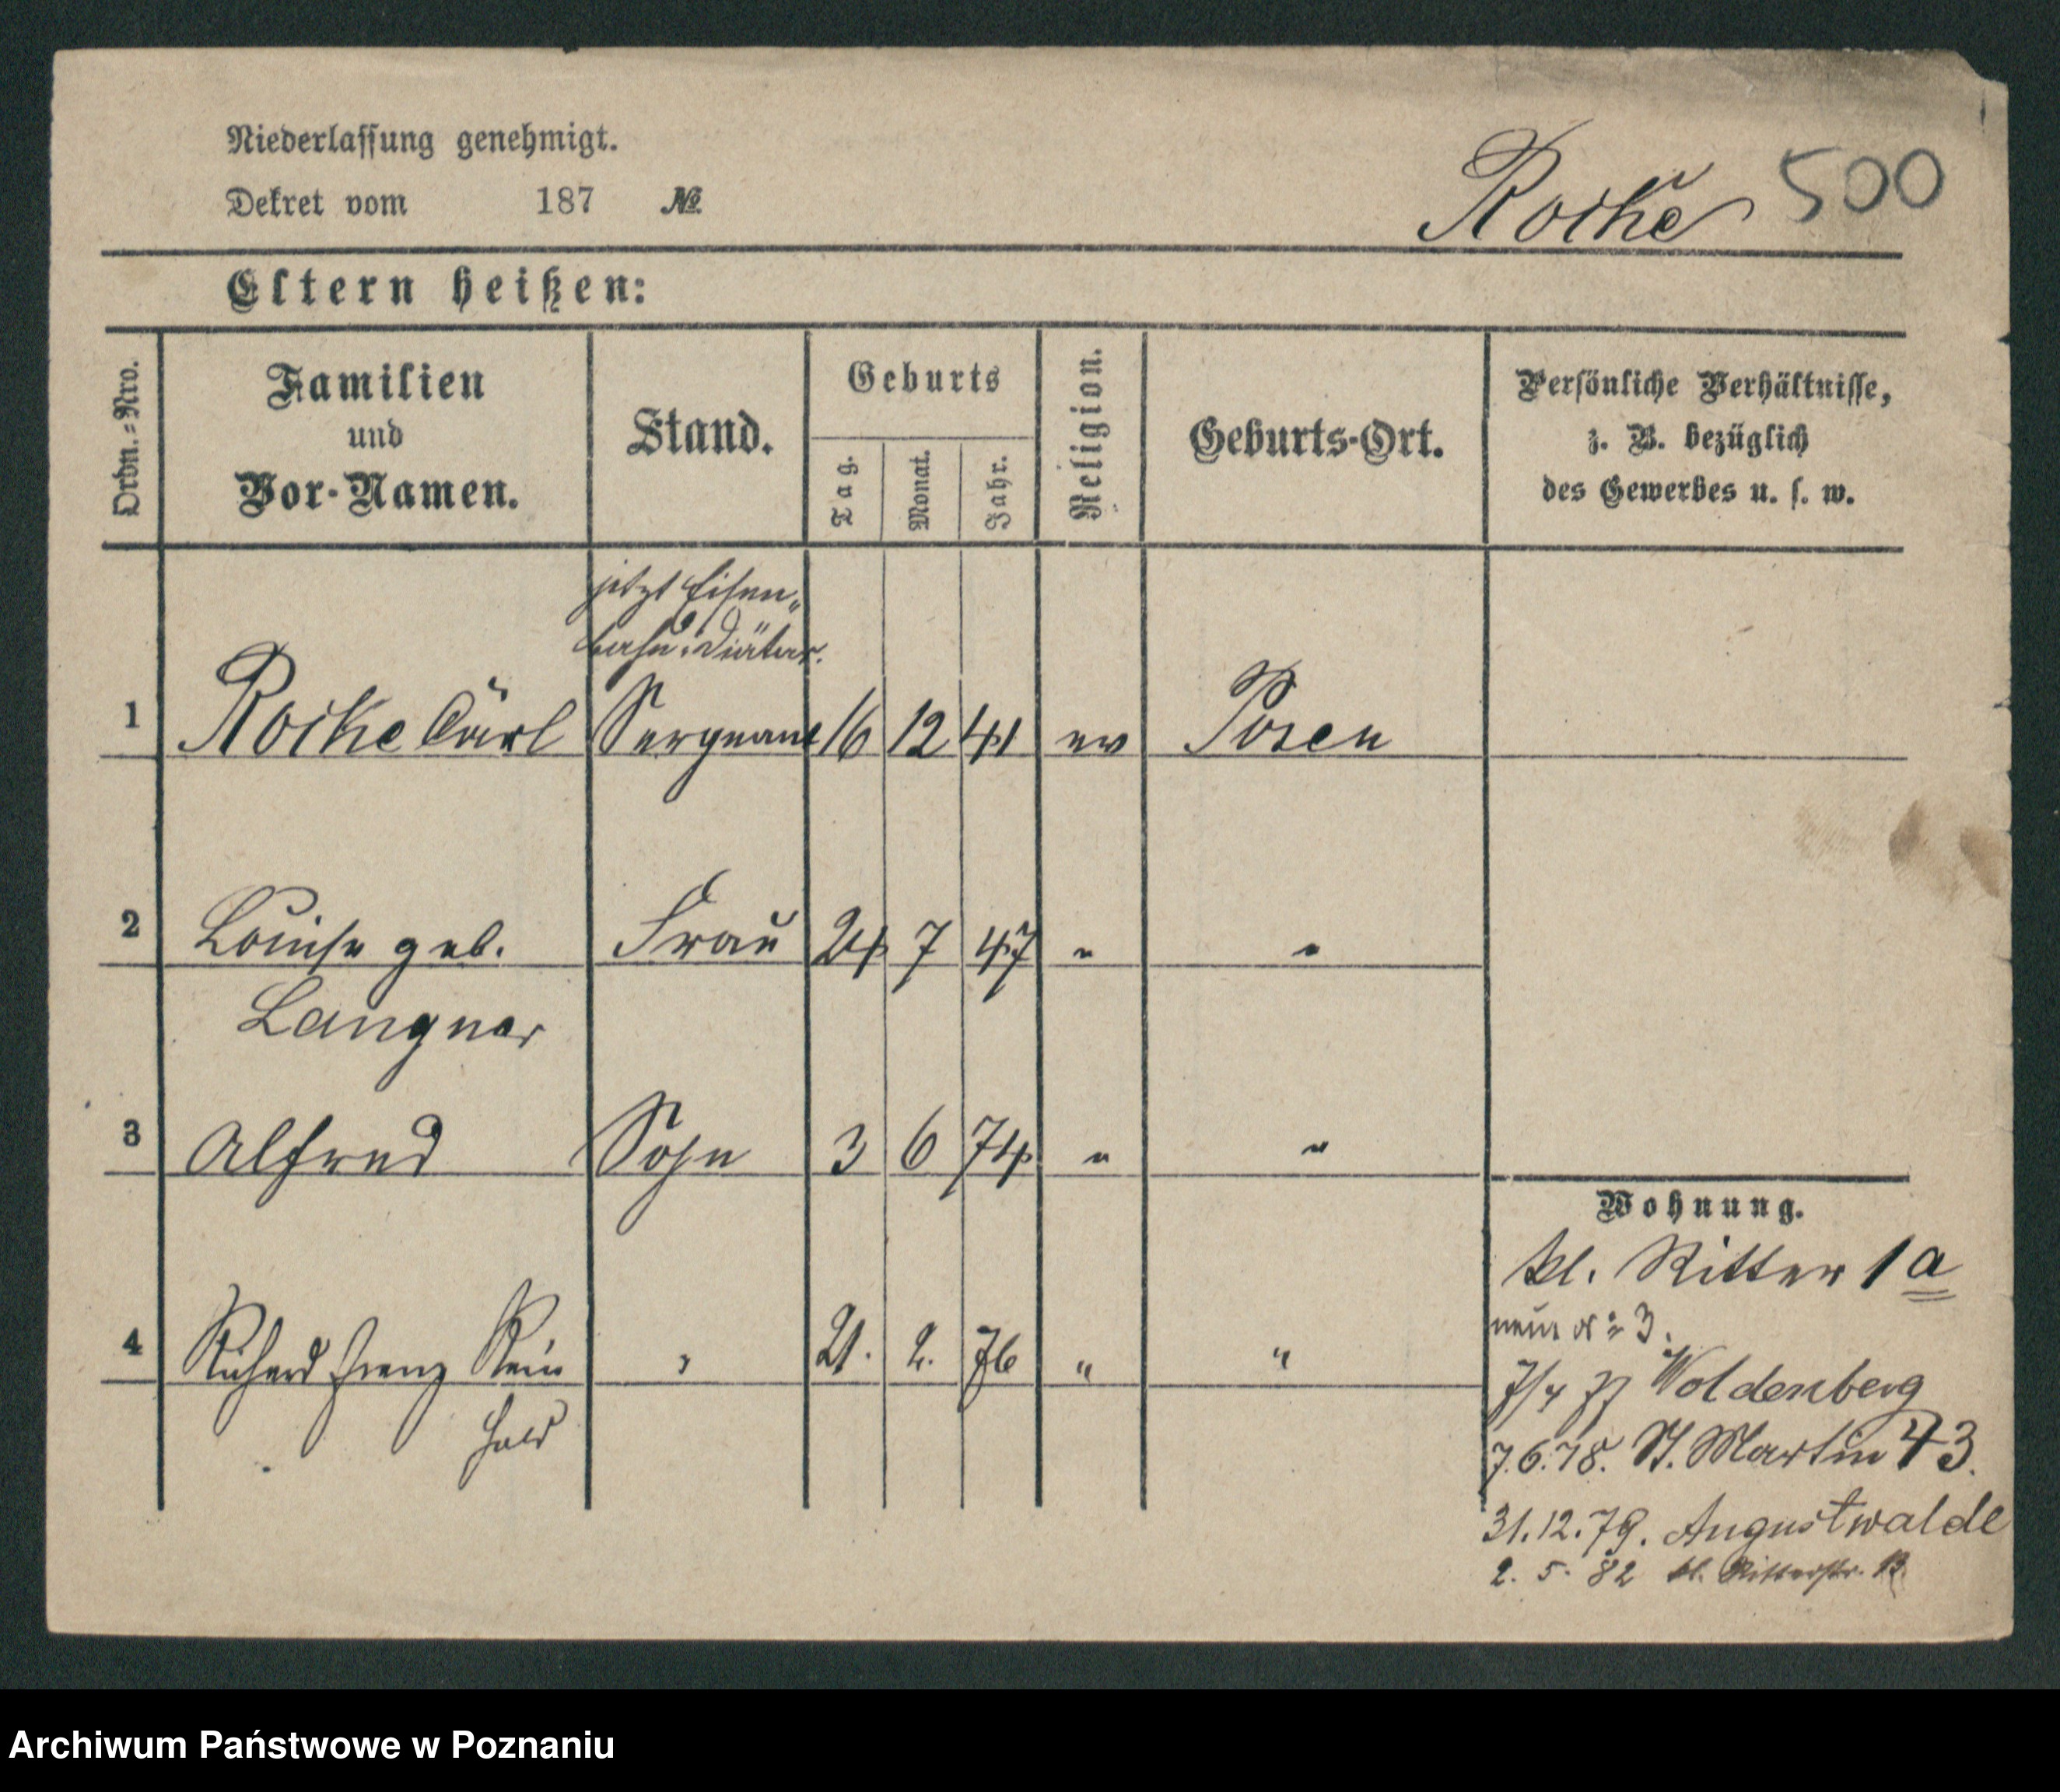 Niederlassung genehmigt.
Dekret vom 187 №
Rothe 500
Eltern heißen:
Ordn.-Nro.
Familien
und
Vor-Namen.
Stand.
Geburts
Tag.
Monat.
Jahr.
Religion.
Geburts-Ort.
Persönliche Verhältnisse,
z. B. bezüglich
des Gewerbes u. s. w.
jetzt Eisen„
bahn-Diätar.
1 Rothe Carl Sergeant 16 12 41 ev Posen
2 Louise geb. Frau 24 7 47 " "
Langner
3 Alfred Sohn 3 6 74 " "
Wohnung.
kl. Ritter 1a
neue № 3.
4 Richard Franz Rein " 21. 2. 76 " "
hold
7/4 77 Woldenberg
7.6.78. St. Martin 43.
31.12.79. Augustwalde
2. 5. 82 kl. Ritterstr.
Archiwum Państwowe w Poznaniu